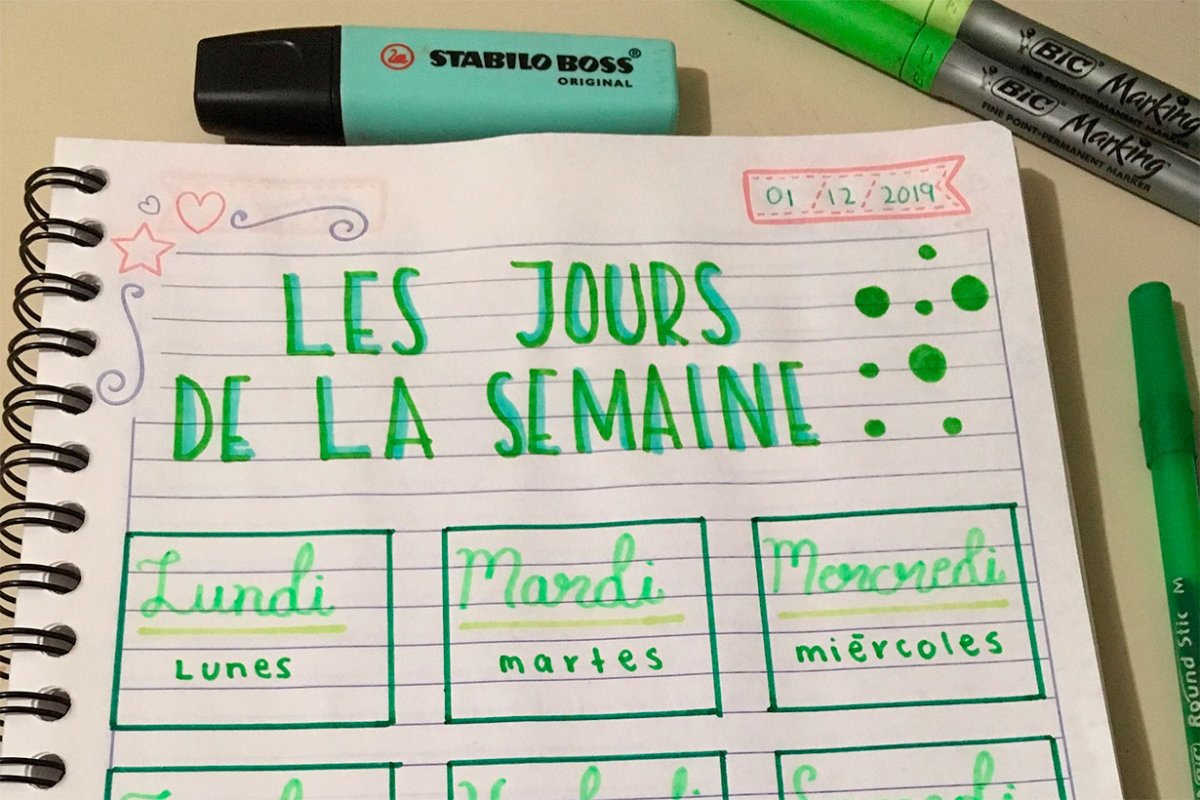 STABILO BOSS®
ORIGINAL
BIC Marking
FINE POINT-PERMANENT MARKER
BIC Marking
FINE POINT-PERMANENT MARKER
01 / 12 / 2019
LES JOURS
DE LA SEMAINE
Lundi
Lunes
Mardi
martes
Mercredi
miércoles
BIC Round Stic M